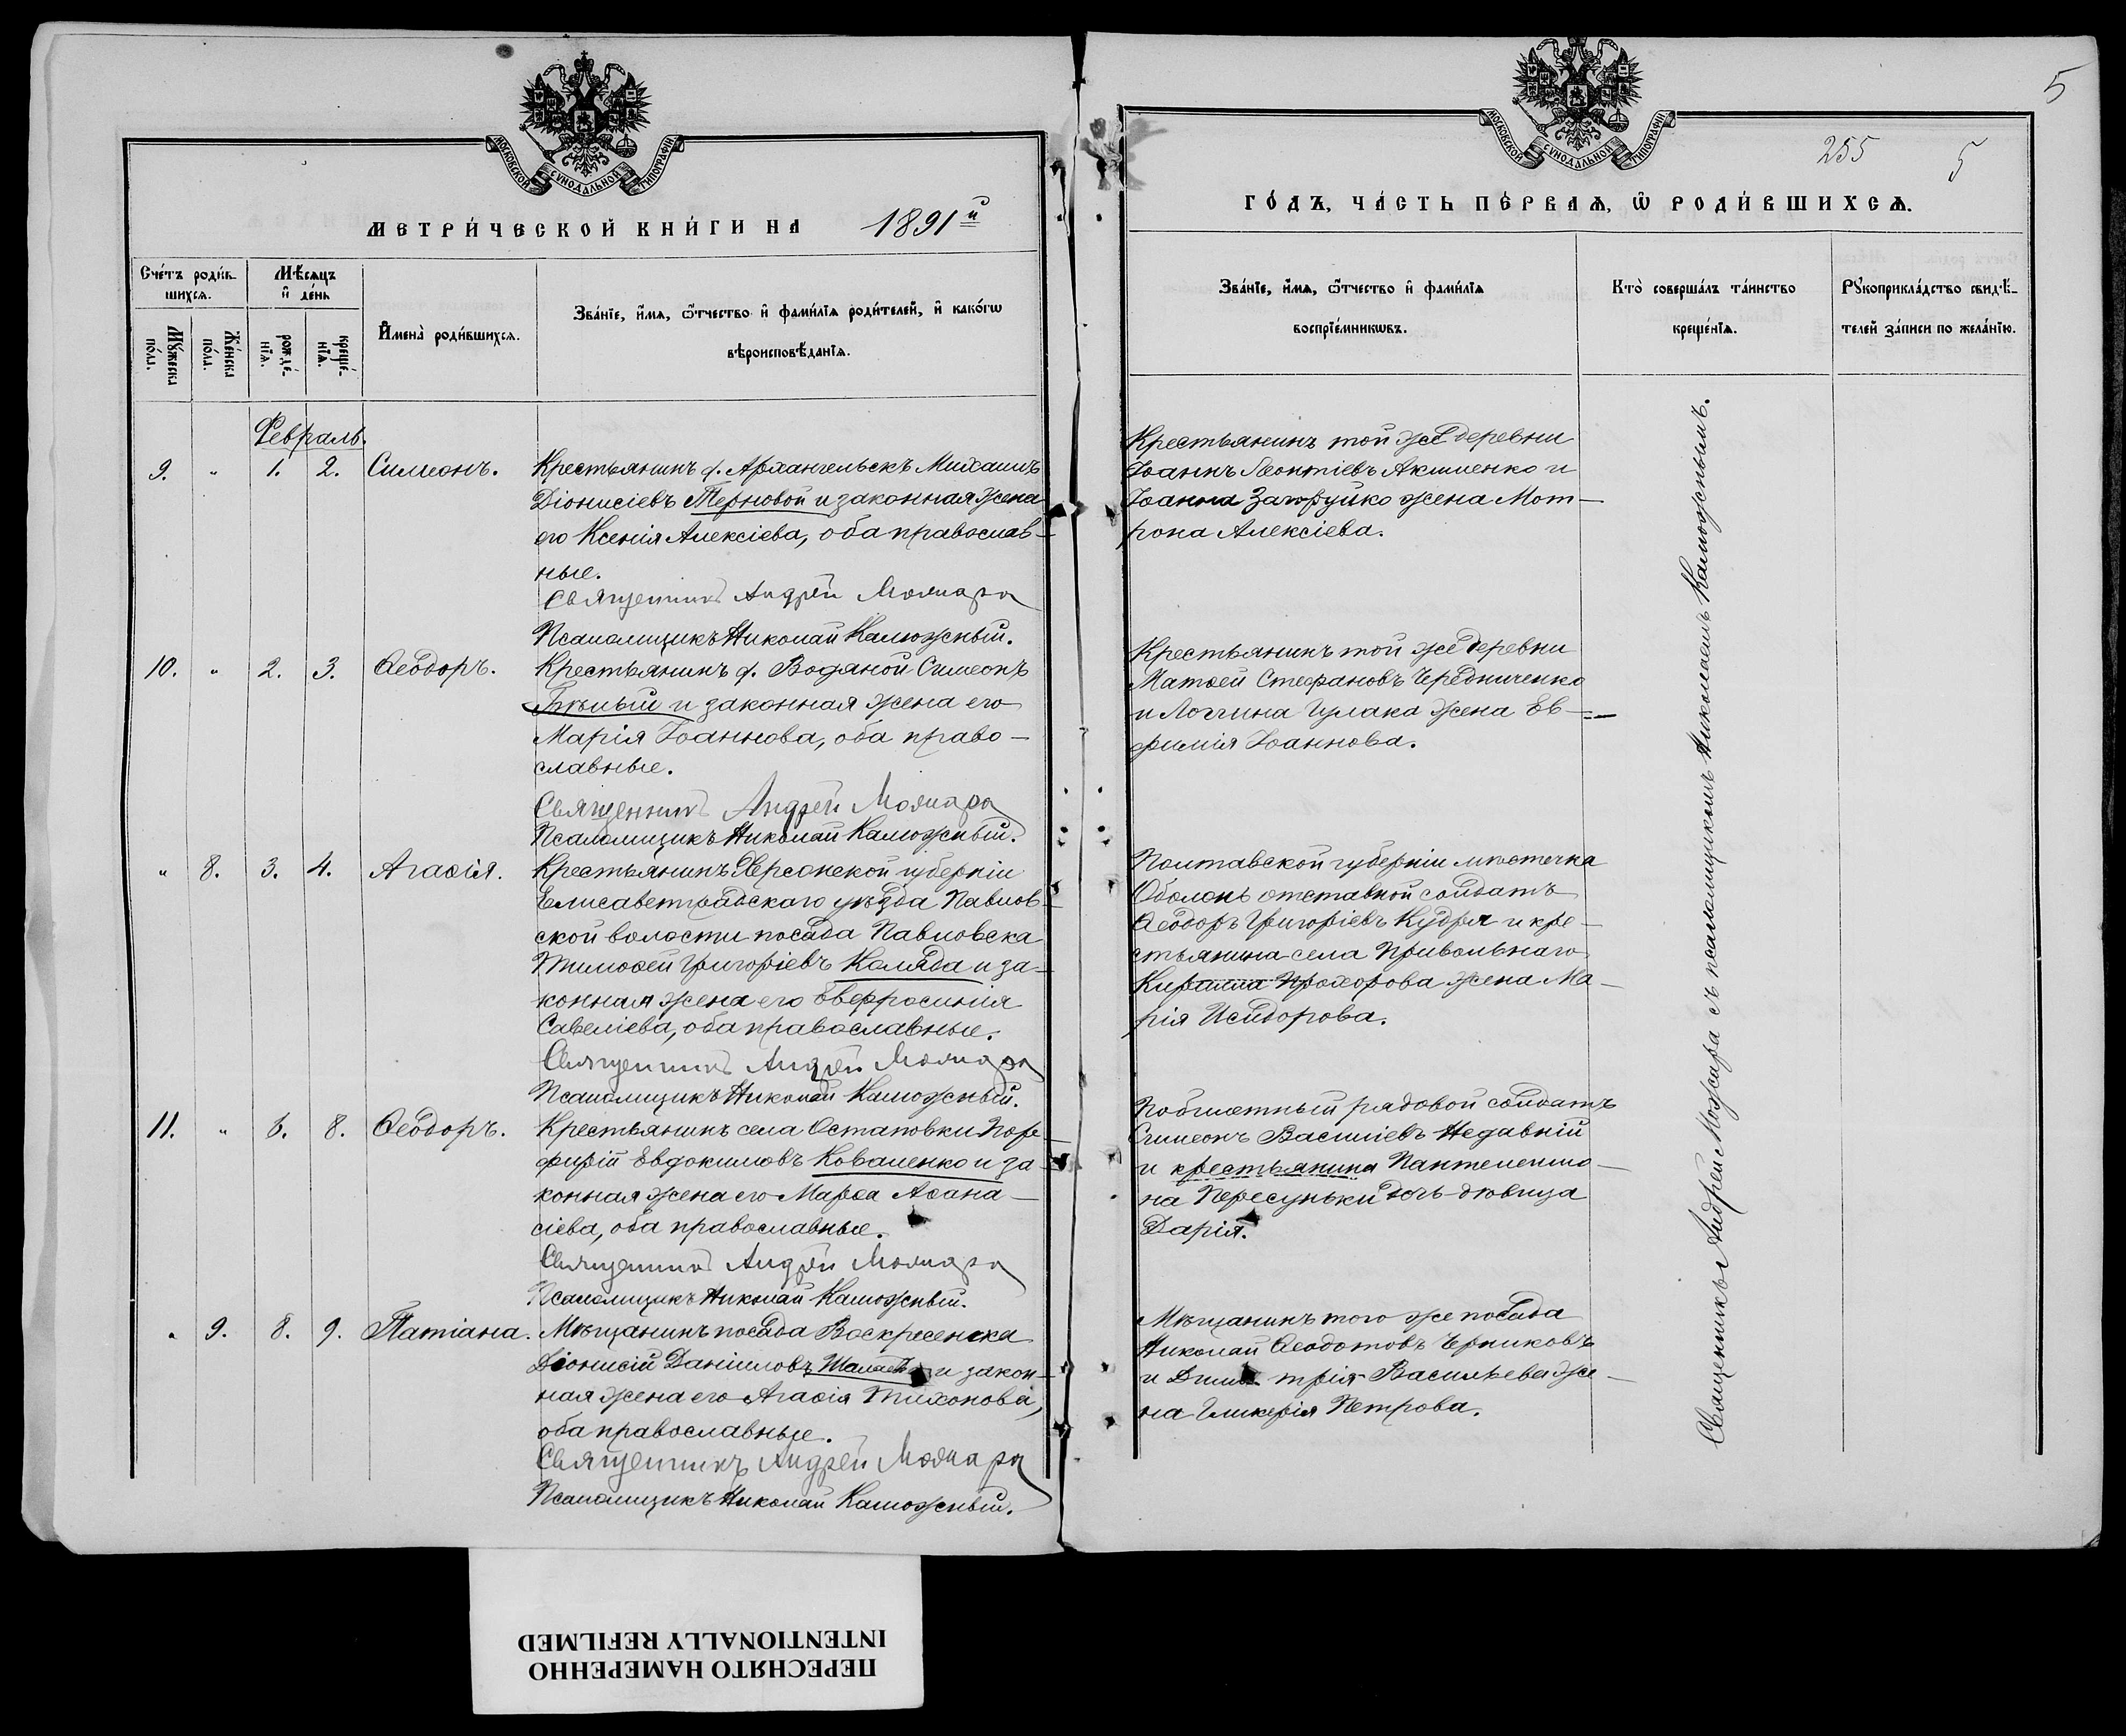 МОСКОВСКОЙ СѴНОДАЛЬНОЙ ТИПОГРАФІИ
МЕТРИ́ЧЕСКОЙ КНИ́ГИ НА 1891й
Сче́тъ роди́в-
шихсѧ.
Мѣ́сѧцъ
и҆ де́нь
Мꙋ́жеска
по́ла.
Же́нска
по́ла.
рожде́-
нїѧ.
креще́-
нїѧ.
И҆мена̀ роди́вшихсѧ.
Зва́нїе, и҆́мѧ, ѻ҆́тчество и҆ фами́лїѧ роди́телей, и҆ како́гѡ
вѣроисповѣ́данїѧ.
Февраль.
9. " 1. 2. Симеонъ.
Крестьянинъ д. Архангельскъ Михаилъ
Діонисіевъ Терновой и законная жена
его Ксенія Алексіева, оба православ-
ные.
Священникъ Андрей Можара
Псаломщикъ Николай Калюжный.
10. " 2. 3. Ѳеодоръ.
Крестьянинъ д. Водяной Симеонъ
и законная жена его
Марія Іоаннова, оба право-
славные.
Священникъ Андрей Можара
Псаломщикъ Николай Калюжный.
" 8. 3. 4. Агаѳія.
Крестьянинъ Херсонской губерніи
Елисаветградскаго уѣзда Павлов-
ской волости посада Павловска
Тимоѳей Григоріевъ Коляда и за-
конная жена его Евфросинія
Савеліева, оба православные.
Священникъ Андрей Можара
Псаломщикъ Николай Калюжный.
11. " 6. 8. Ѳеодоръ.
Крестьянинъ села Остаповки Пор-
фирій Евдокимовъ Коваленко и за-
конная жена его Марѳа Аѳана-
сіева, оба православные.
Священникъ Андрей Можара
Псаломщикъ Николай Калюжный.
" 9. 8. 9. Татіана.
Мѣщанинъ посада Воскресенска
Діонисій Даніиловъ Шалаевъ и закон-
ная жена его Агаѳія Тихонова,
оба православные.
Священникъ Андрей Можара
Псаломщикъ Николай Калюжный.
5
255 5
МОСКОВСКОЙ СѴНОДАЛЬНОЙ ТИПОГРАФІИ
ГО́ДЪ, ЧА́СТЬ ПЕ́РВАѦ, Ѡ҆ РОДИ́ВШИХСѦ.
Зва́нїе, и҆́мѧ, ѻ҆́тчество и҆ фами́лїѧ
воспрїе́мникѡвъ.
Кто̀ соверша́лъ та́инство
креще́нїѧ.
Рꙋкоприкла́дство свидѣ́-
телей за́писи по жела́нїю.
Крестьянинъ той же деревни
Іоаннъ Леонтіевъ Акименко и
Іоанна Загоруйко жена Мот-
рона Алексіева.
Крестьянинъ той же деревни
Матѳей Стефановъ Чередниченко
и Логгина Гулака жена Ев-
фимія Іоаннова.
Полтавской губерніи мѣстечка
Оболонь отставной солдатъ
Ѳеодоръ Григоріевъ Кудря и кре-
стьянина села Привольнаго
Кирилла Прохорова жена Ма-
рія Исидорова.
Побилетный рядовой солдатъ
Симеонъ Василіевъ Недавній
и крестьянина Пантелеимо-
на Пересуньки дочь-дѣвица
Дарія.
Мѣщанинъ того же посада
Николай Ѳеодотовъ Черниковъ
и Дими трія Васильева же-
на Гликерія Петрова.
Священникъ Андрей Можара съ псаломщикомъ Николаемъ Калюжнымъ.
ПЕРЕСНЯТО НАМЕРЕННО
INTENTIONALLY REFILMED